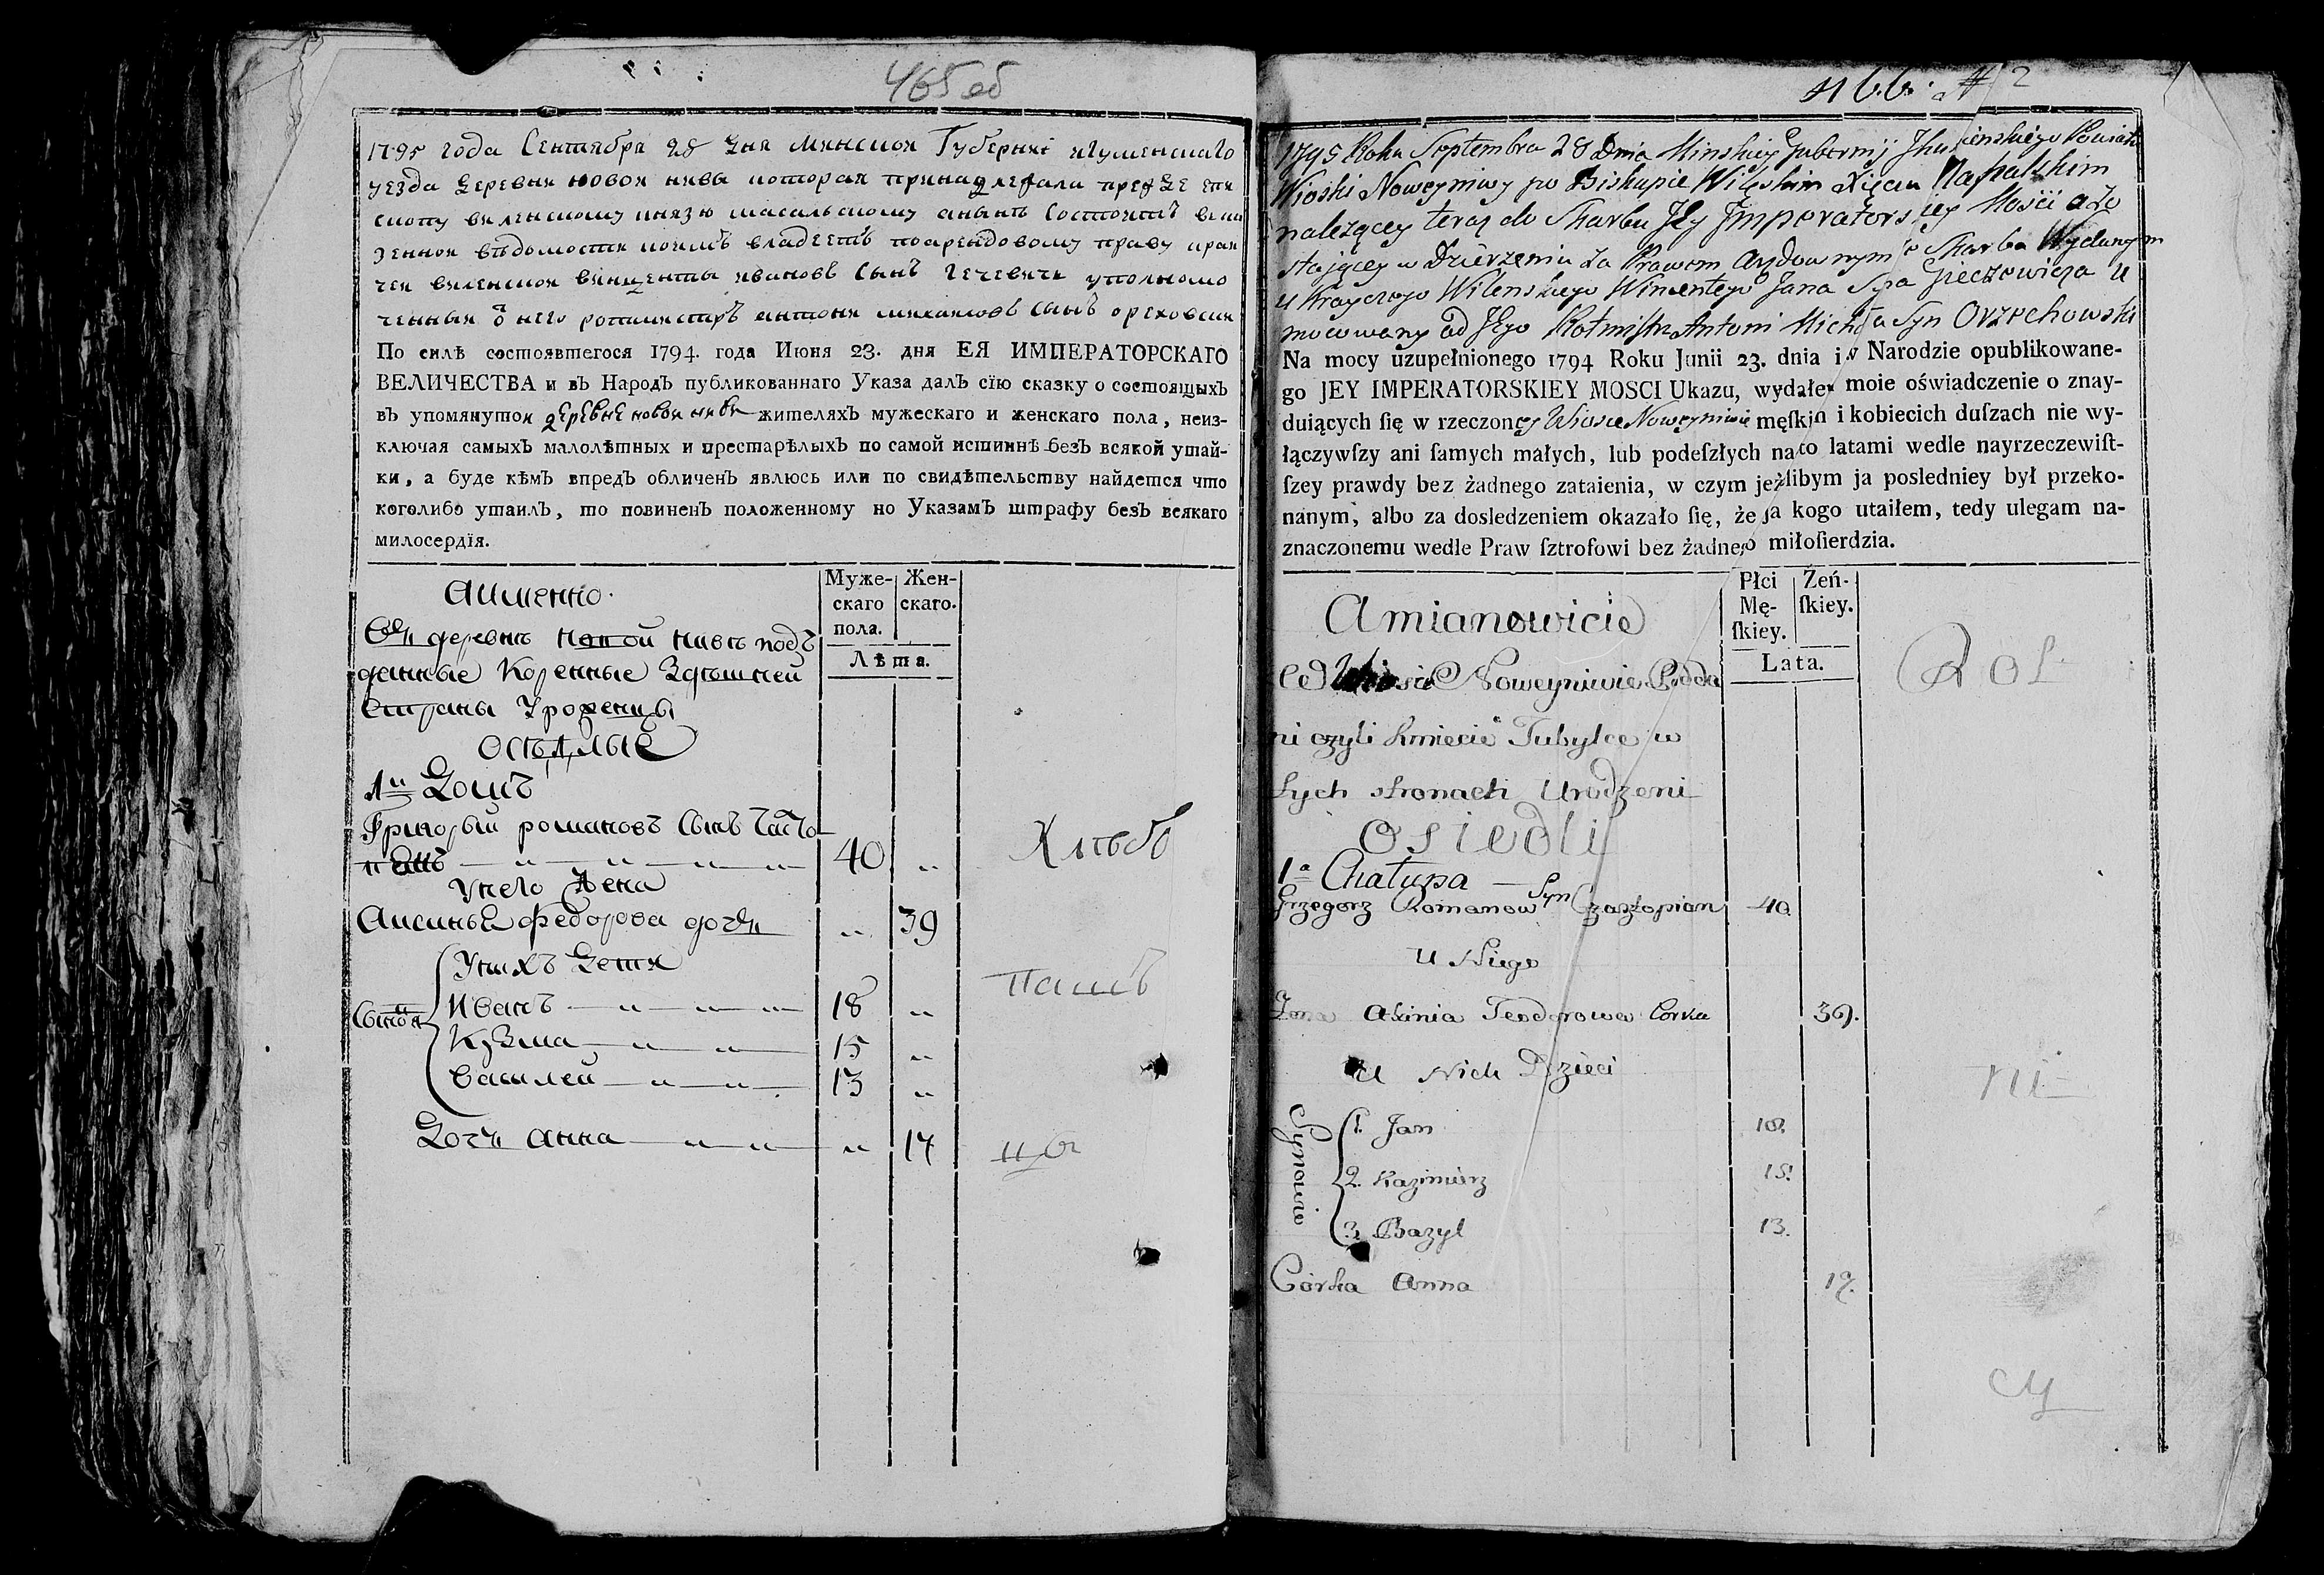 465 об
1795 года Сентября 28 дня минской Губернии игуменскаго
уезда деревни новой нивы которая принадлежала прежде епи
скопу виленскому князю масальскому анынѣ состоитъ вка
зенной вѣдомости коимъ владеетъ поарендовому праву край
чей виленской винценты ивановъ сынъ гечевичь уполномо
ченный ѿ него ротмистръ антони михайловъ сынъ ореховски
По силѣ состоявшегося 1794. года Июня 23. дня ЕЯ ИМПЕРАТОРСКАГО
ВЕЛИЧЕСТВА и въ НародЪ публикованнаго Указа далЪ сїю сказку о состоящыхъ
въ упомянутой деревне новой ниви жителяхЪ мужескаго и женскаго пола, неиз-
ключая самыхъ малолѣтныхъ и престарѣлыхЪ по самой истиннѣ безЪ всякой утай-
ки, а буде кѣмЪ впредЪ обличенЪ явлюсь или по свидѣтельству найдется что
коголибо утаилЪ, то повиненЪ положенному по УказамЪ штрафу безЪ всякаго
милосердїя.
Аименно.
Муже-
скаго
пола.
Жен-
скаго.
Лѣта.
деревнѣ Новой нивѣ подъ
данные Коренные Здѣшней
Страны Уроженцы
Осѣдлые
1й Домъ
Григорый романовъ Сынъ
40 „
Унего Жена
Аксинья федорова дочь „ 39
Унихъ Дети
Сыновя
Иванъ 18 „
Кузма 15 „
Василей 13 „
Дочь анна „ 17
Хлѣбо
пашъ
цы
466. 2
1795 Roku Septembra 28 Dnia Minskiey Gubernij Jhumenskiego Powiatu
Wioski Noweyniwy po Biskupie Wileskim Xięciu Masalskim
należącey teraz do Skarbu Jey Imperatorskiey Mości a zo
stającey w Dzierżeniu za Prawem Arędownym z Skarbu Wydanym
u Krayczego Wilenskiego Wincentego Jana Syna Gieczewicza U
mocowany od Jego Rotmistrz Antoni Michała Syn Orzechowski
Na mocy uzupełnionego 1794 Roku Junii 23. dnia i w Narodzie opublikowane-
go JEY IMPERATORSKIEY MOSCI Ukazu, wydałem moie oświadczenie o znay-
duiących ſię w rzeczoney Wiosce Noweyniwie męſkich i kobiecich duſzach nie wy-
łączywſzy ani ſamych małych, lub podeſzłych naco latami wedle nayrzeczewiſt-
ſzey prawdy bez żadnego zataienia, w czym jeżlibym ja posledniey był przeko-
nanym, albo za dosledzeniem okazało ſię, że ja kogo utaiłem, tedy ulegam na-
znaczonemu wedle Praw ſztrofowi bez żadnego miłoſierdzia.
Amianowicie
Płci
Mę-
ſkiey.
Żeń-
ſkiey.
Lata.
Wiosce Noweyniwie Podda
ni czyli Kmiecie Tubylce w
tych stronach Urodzeni
Osiedli
1a Chałupa
Grzegorz Romanow Syn Czasłopian 40.
U Niego
Żona Axinia Teodorowa Corka 39.
U Nich Dzieci
Synowie
1. Jan 18.
2. Kazimierz 15.
3. Bazyl 13.
Córka Anna 17.
Rol
ni
cy